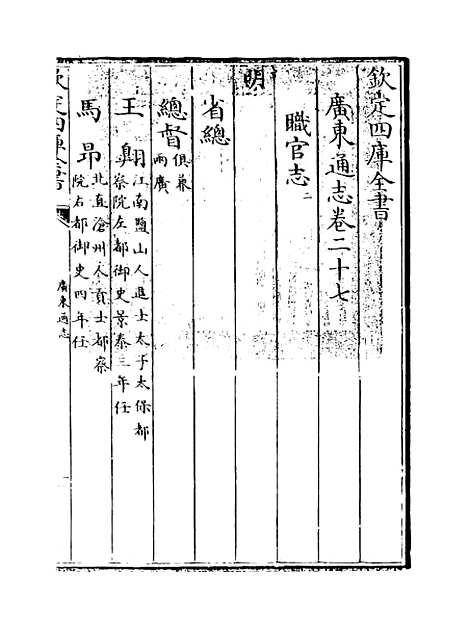 欽定四庫全書
廣東通志卷二十七
職官志二
明
省總
總督俱兼兩廣
王翱江南鹽山人進士太子太保都察院左都御史景泰三年任
馬昂北直滄州人貢士都察院右都御史四年任
欽定四庫全書
廣東通志
一